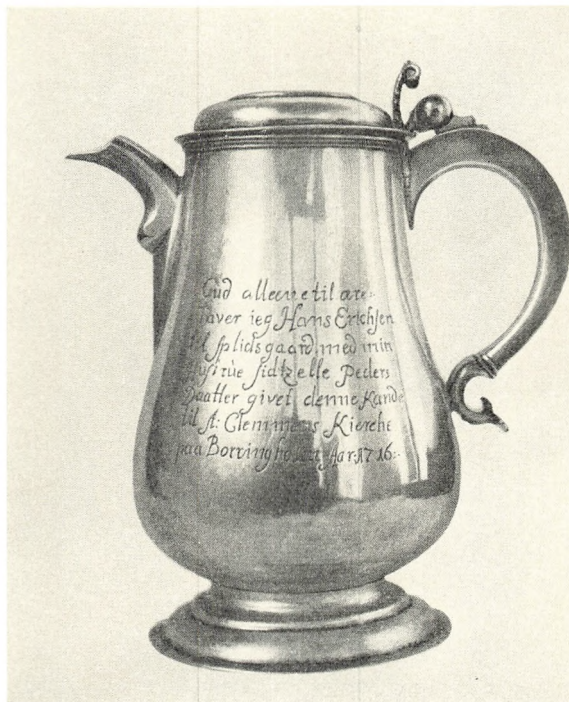 Gud alleene til ære:
haver ieg Hans Erichsen
Splidsgaard med min
Hustrue Sidtzelle Peders
Daatter givet denne Kande
til St: Clemmens Kierche
paa Borringholm Aar: 1716: